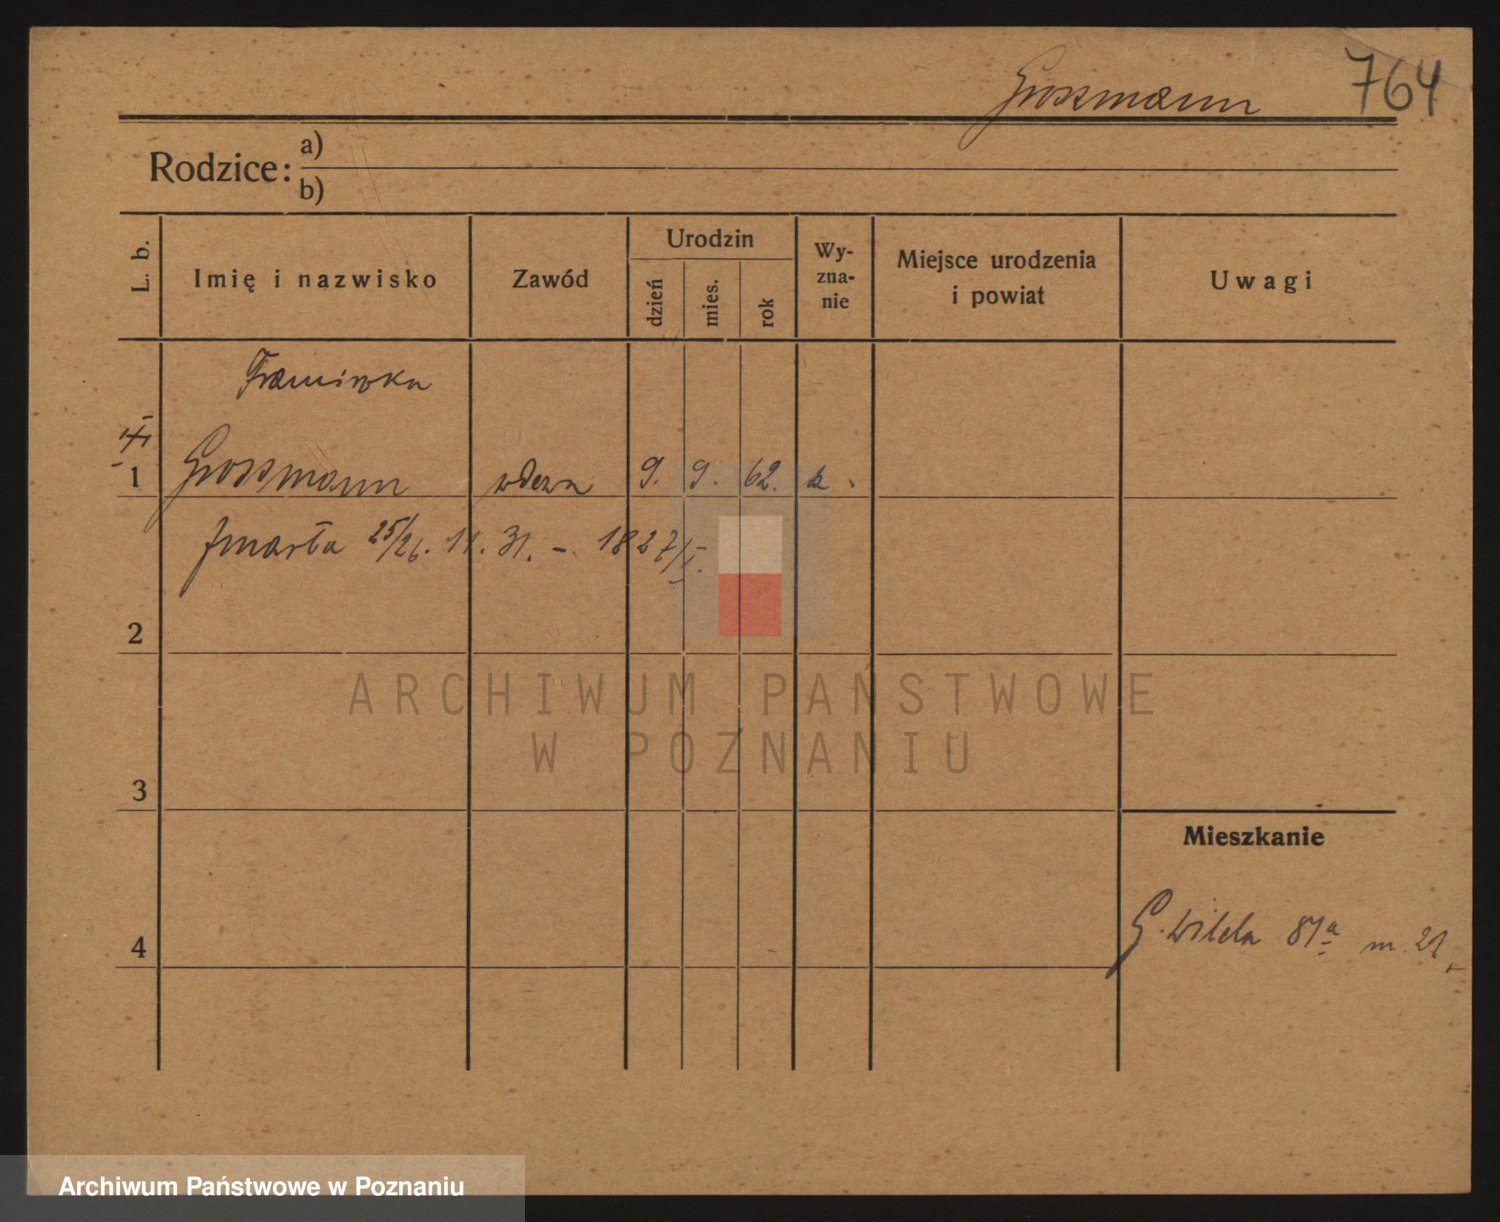 Grossmann 764
Rodzice: a)
b)
L. b. Imię i nazwisko Zawód Urodzin dzień mies. rok Wy-zna-nie Miejsce urodzenia i powiat Uwagi
1 Grossmann wdowa 9. 9. 62. k.
Zmarła 25/26. 11. 31. – 1827/I.
2
ARCHIWUM PAŃSTWOWE
W POZNANIU
3
Mieszkanie
4 G. Wilda 87a m. 21
Archiwum Państwowe w Poznaniu